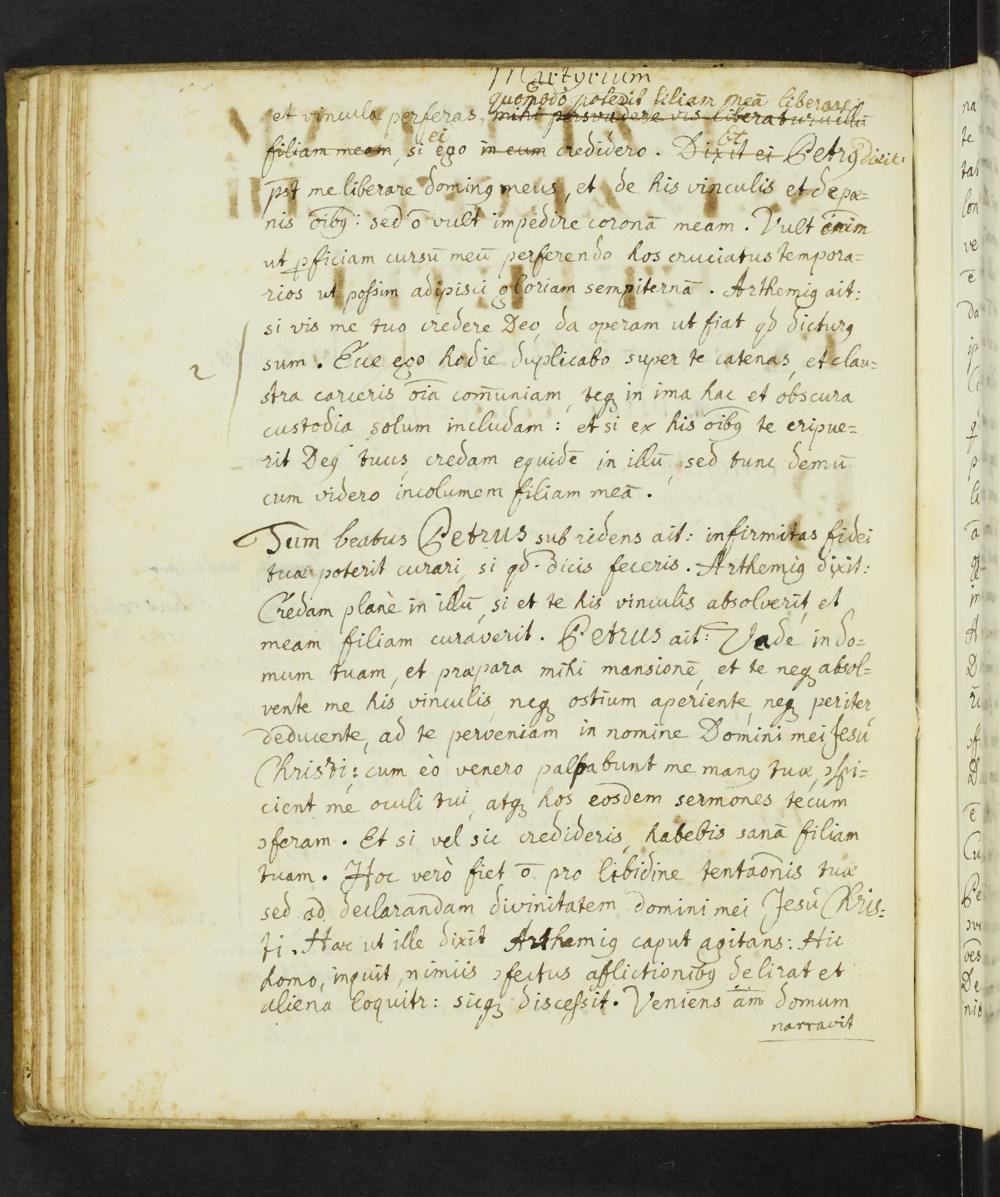 Martyrium
quomodo poterit filiam meā liberare
et vincula perferas, mihi persuadere vis liberaturū illū
filiam meam, si ei ego in eum credidero. Dixit ei bt Petrꝰ dicit:
pst me liberare dominꝰ meus, et de his vinculis et de pœ=
nis oībꝰ: sed ō vult impedire coronā meam. Vult enim
ut ꝑficiam cursū meū perferendo hos cruciatus tempora=
rios ut possim adipisci gloriam sempiternā. Arthemiꝰ ait:
si vis me tuo credere Deo, da operam ut fiat qd dicturꝰ
2
sum. Ecce ego hodie duplicabo super te catenas, et clau=
stra carceris oīa com̄uniam, teqꝫ in ima hac et obscura
custodia solum includam: et si ex his oībꝰ te eripue=
rit Deꝰ tuus, credam equidē in illū, sed tunc demū
cum videro incolumem filiam meā.
Tum beatus Petrus subridens ait: infirmitas fidei
tuæ poterit curari, si qd dicis feceris. Arthemiꝰ dixit:
Credam planè in illū, si et te his vinculis absolverit, et
meam filiam curaverit. Petrus ait: Vade in do=
mum tuam, et præpara mihi mansionē, et te neqꝫ absol=
vente me his vinculis, neqꝫ ostium aperiente, neqꝫ pariter
deducente, ad te perveniam in nomine Domini mei Jesu
Christi: cum eò venero palpabunt me manꝰ tuæ, ꝯspi=
cient me oculi tui, atqꝫ hos eosdem sermones tecum
ꝯferam. Et si vel sic credideris, habebis sanā filiam
tuam. Hoc verò fiet ō pro libidine tentaōnis tuæ
sed ad declarandam divinitatem domini mei Jesu Chris=
ti. Hæc ut ille dixit Arthemiꝰ caput agitans: Hic
homo, inquit, nimiis ꝯfectus afflictionibꝰ delirat et
aliena loquitr: sicqꝫ discessit. Veniens ām domum
narravit